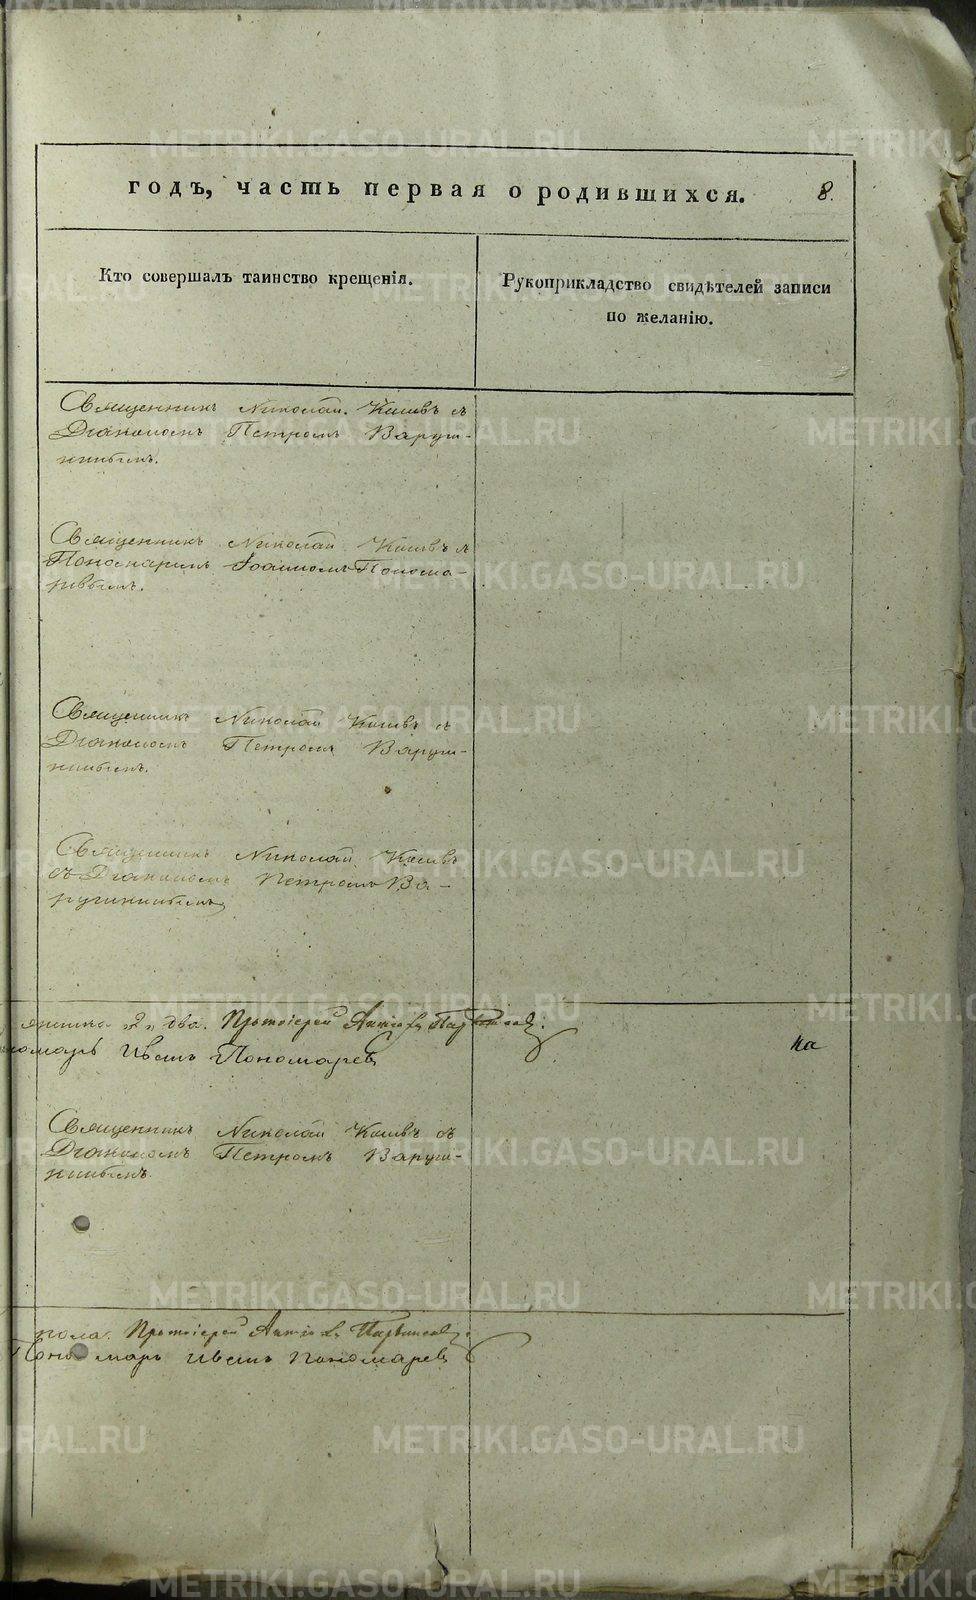 годъ, часть первая о родившихся. 8.
Кто совершалъ таинство крещенія.
Рукоприкладство свидѣтелей записи
по желанію.
Священникъ Николай
Діакономъ Петромъ Варуш-
кинымъ.
Священникъ Николай
Пономаремъ Іоанномъ Понома-
ревымъ.
Священникъ Николай
Діакономъ Петромъ Варуш-
кинымъ.
Священникъ Николай
съ Діакономъ Петромъ Ва-
рушкинымъ
2 два. Протоіерей
Иванъ Пономаревъ
на
Священникъ Николай съ
Діакономъ Петромъ Варуш-
кинымъ.
пола. Протоіерей
Пономарь Иванъ Пономаревъ
METRIKI.GASO-URAL.RU